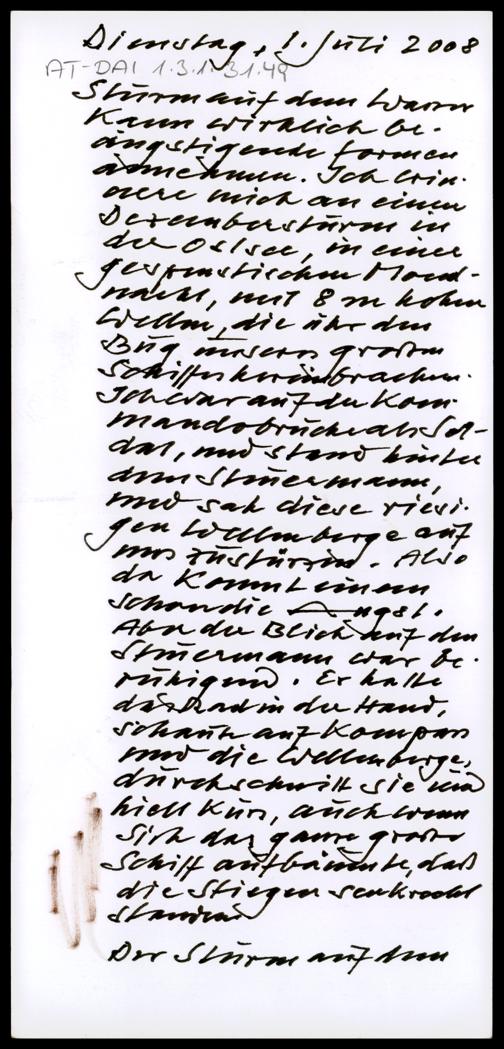 Dienstag, 1. Juli 2008
AT-DAI 1.3.1-31.49
Sturm auf dem Wasser
kann wirklich be-
ängstigende Formen
annehmen. Ich erin-
nere mich an einen
Dezembersturm in
der Ostsee, in einer
gespenstischen Mond-
nacht, mit 8 m hohen
Wellen, die über den
Bug unseres großen
Schiffes hereinbrachen.
Ich war auf der Kom-
mandobrücke als Sol-
dat, und stand hinter
dem Steuermann,
und sah diese riesi-
gen Wellenberge auf
uns zustürzen. Also
da kommt einem
schon die Angst.
Aber der Blick auf den
Steuermann war be-
ruhigend. Er hatte
das Rad in der Hand,
schaute auf Kompass
und die Wellenberge,
durchschnitt sie und
hielt Kurs, auch wenn
sich das ganze große
Schiff aufbäumte, daß
die Stiegen senkrecht
standen
Der Sturm auf dem